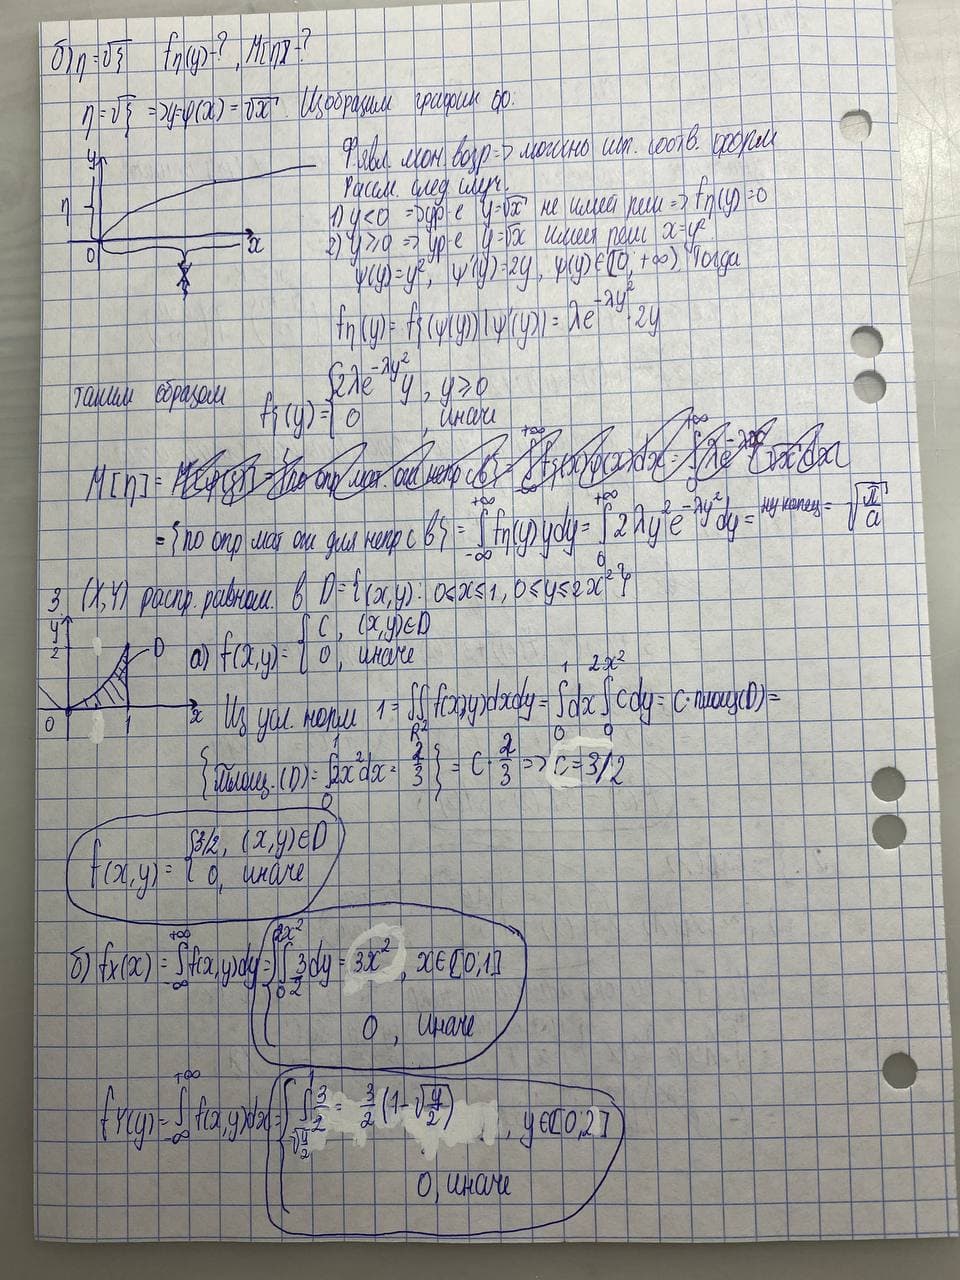 б) η = √ξ fη(y)-?, M[η]-?
η = √ξ => y=φ(x) = √x. Изобразим график φ:
y
η
0
x
φ явл. мон. возр => можно исп. соотв. форм
Рассм. след случ.
1) y<0 => ур-е y=√x не имеет реш => fη(y)=0
2) y≥0 => ур-е y=√x имеет реш x=y²
ψ(y)=y², ψ'(y)=2y, ψ(y)∈[0, +∞) Тогда
fη(y) = fξ(ψ(y))|ψ'(y)| = λe^{-λy²}·2y
таким образом fξ(y) = { 2λe^{-λy²}y, y≥0
0, иначе
M[η] =
= {по опр мат ож для непр с в} = ∫_{-∞}^{+∞} fη(y)ydy = ∫_0^{+∞} 2λy²e^{-λy²}dy = = √(π/a)
3. (X,Y) распр. равном. в D = {(x,y): 0≤x≤1, 0≤y≤2x²}
y
2
D
0
1
x
а) f(x,y) = { C, (x,y)∈D
0, иначе
Из усл. норм 1 = ∬_{R²} f(x,y)dxdy = ∫_0^1 dx ∫_0^{2x²} Cdy = C·площ(D) =
{Площ.(D) = ∫_0^1 2x²dx = 2/3} = C·2/3 => C = 3/2
f(x,y) = { 3/2, (x,y)∈D
0, иначе
б) fx(x) = ∫_{-∞}^{+∞} f(x,y)dy = { ∫_0^{2x²} 3/2 dy = 3x², x∈[0,1]
0, иначе
fY(y) = ∫_{-∞}^{+∞} f(x,y)dx = { ∫_{√(y/2)}^1 3/2 = 3/2 (1-√(y/2)), y∈[0,2]
0, иначе